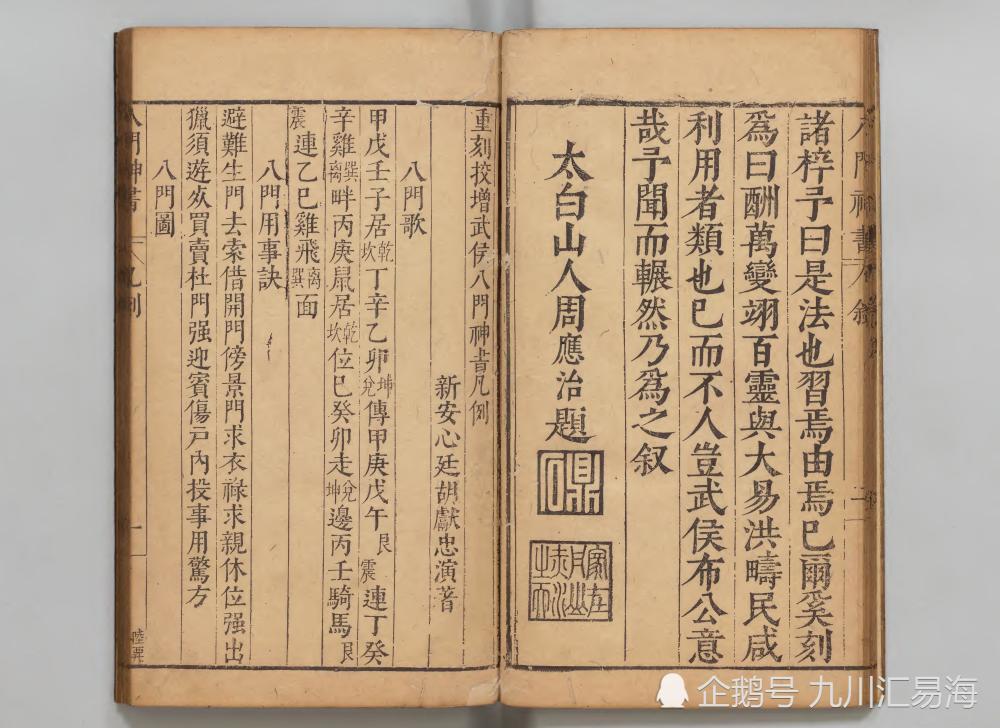 諸梓予曰是法也習焉由焉已爾奚刻
爲曰酬萬變翊百靈與大易洪疇民咸
利用者類也已而不人豈武侯布公意
哉予聞而輾然乃爲之叙
太白山人周應治題
重刻挍增武侯八門神書凡例
新安心廷胡獻忠演著
八門歌
甲戊壬子居乾坎丁辛乙卯坤兌傳甲庚戊午艮震連丁癸
辛雞巽離畔丙庚鼠居乾坎位巳癸卯走兌坤邊丙壬騎馬艮
震連乙巳雞飛離巽面
八門用事訣
避難生門去索借開門傍景門求衣祿求親休位强出
獵須遊奻買賣杜門强迎賓傷戸內投事用驚方
八門圖
八門神書
凡例
一
企鹅号 九川汇易海